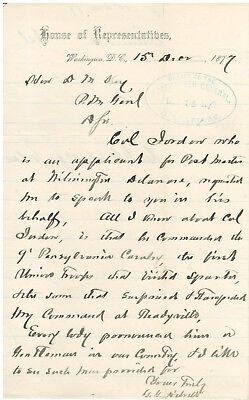 House of Representatives,
Washington, D.C., 15 Decr 1877
Hon D M Key
P. M. Genl
D Sir
Col Jordon who
is an applicant for Post Master
at Wilmington Delaware, requested
me to speak to you in his
behalf, All I know about Col
Jordon, is that he commanded the
9" Pennsylvania Cavalry, the first
Union Troops that visited Sparta,
the same that surprised & stampeded
my Command at Readyville.
Every body pronounced him a
Gentleman in our Country, I'd like
to see such men provided for
Yours Truly